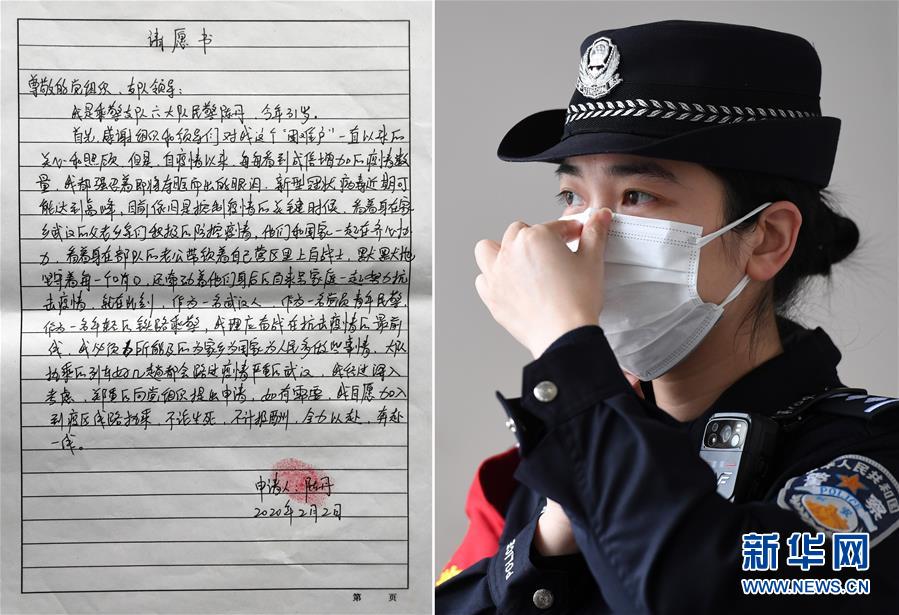 请愿书
尊敬的党组织、支队领导：
我是乘警支队六大队民警陈丹，今年31岁。
首先，感谢组织和领导们对我这个“困难户”一直以来的
关心和照顾，但是，自疫情以来，每每看到成倍增加的疫情数
量，我都强忍着即将夺眶而出的眼泪，新型冠状病毒近期可
能达到高峰，目前依旧是控制疫情的关键时候，看着身在家
乡武汉的父老乡亲们积极的防控疫情，他们和国家一起在齐心协
力，看着身在部队的老公带领着自己营区里上百战士，默默地
坚守着每一个岗口，还牵动着他们身后的百来号家庭一起努力抗
击疫情，就在此刻，作为一名武汉人，作为一名青年民警，
作为一名年轻的铁路乘警，我理应奋战在抗击疫情的最前
线，我必须为所能及的为家乡为国家为人民多做些事情，大队
担乘的列车几趟都会路过疫情严重的武汉，我经过深入
考虑，郑重的向党组织提出申请，如有需要，我自愿加入
到疫区线路担乘，不论生死，不计报酬，全力以赴，奔赴
一线。
申请人：陈丹
2020年2月2日
第 页
警察
POLICE
新华网
WWW.NEWS.CN